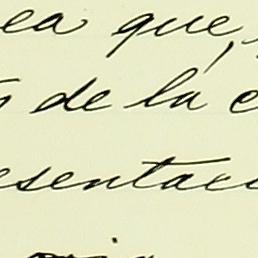 ea que,
de la c
esentac